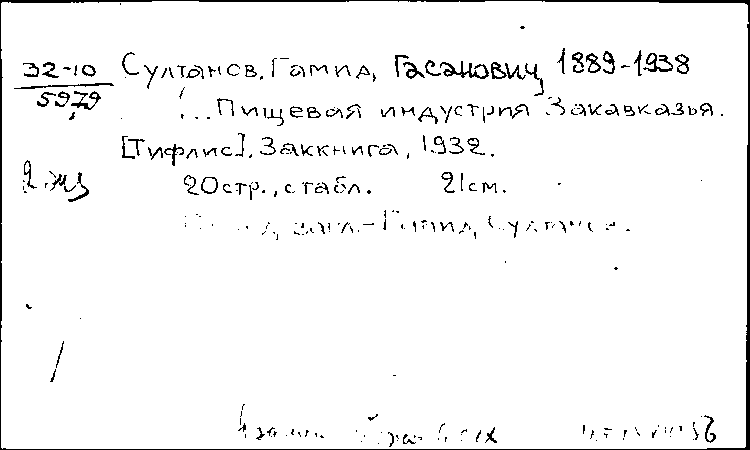 32-10 Султанов, Гамид, Гасанович, 1889-1938
5979 ...Пищевая индустрия Закавказья.
[Тифлис], Заккнига, 1932.
2 экз 20стр., с табл. 21см.
загл.-Гамид Султанов.